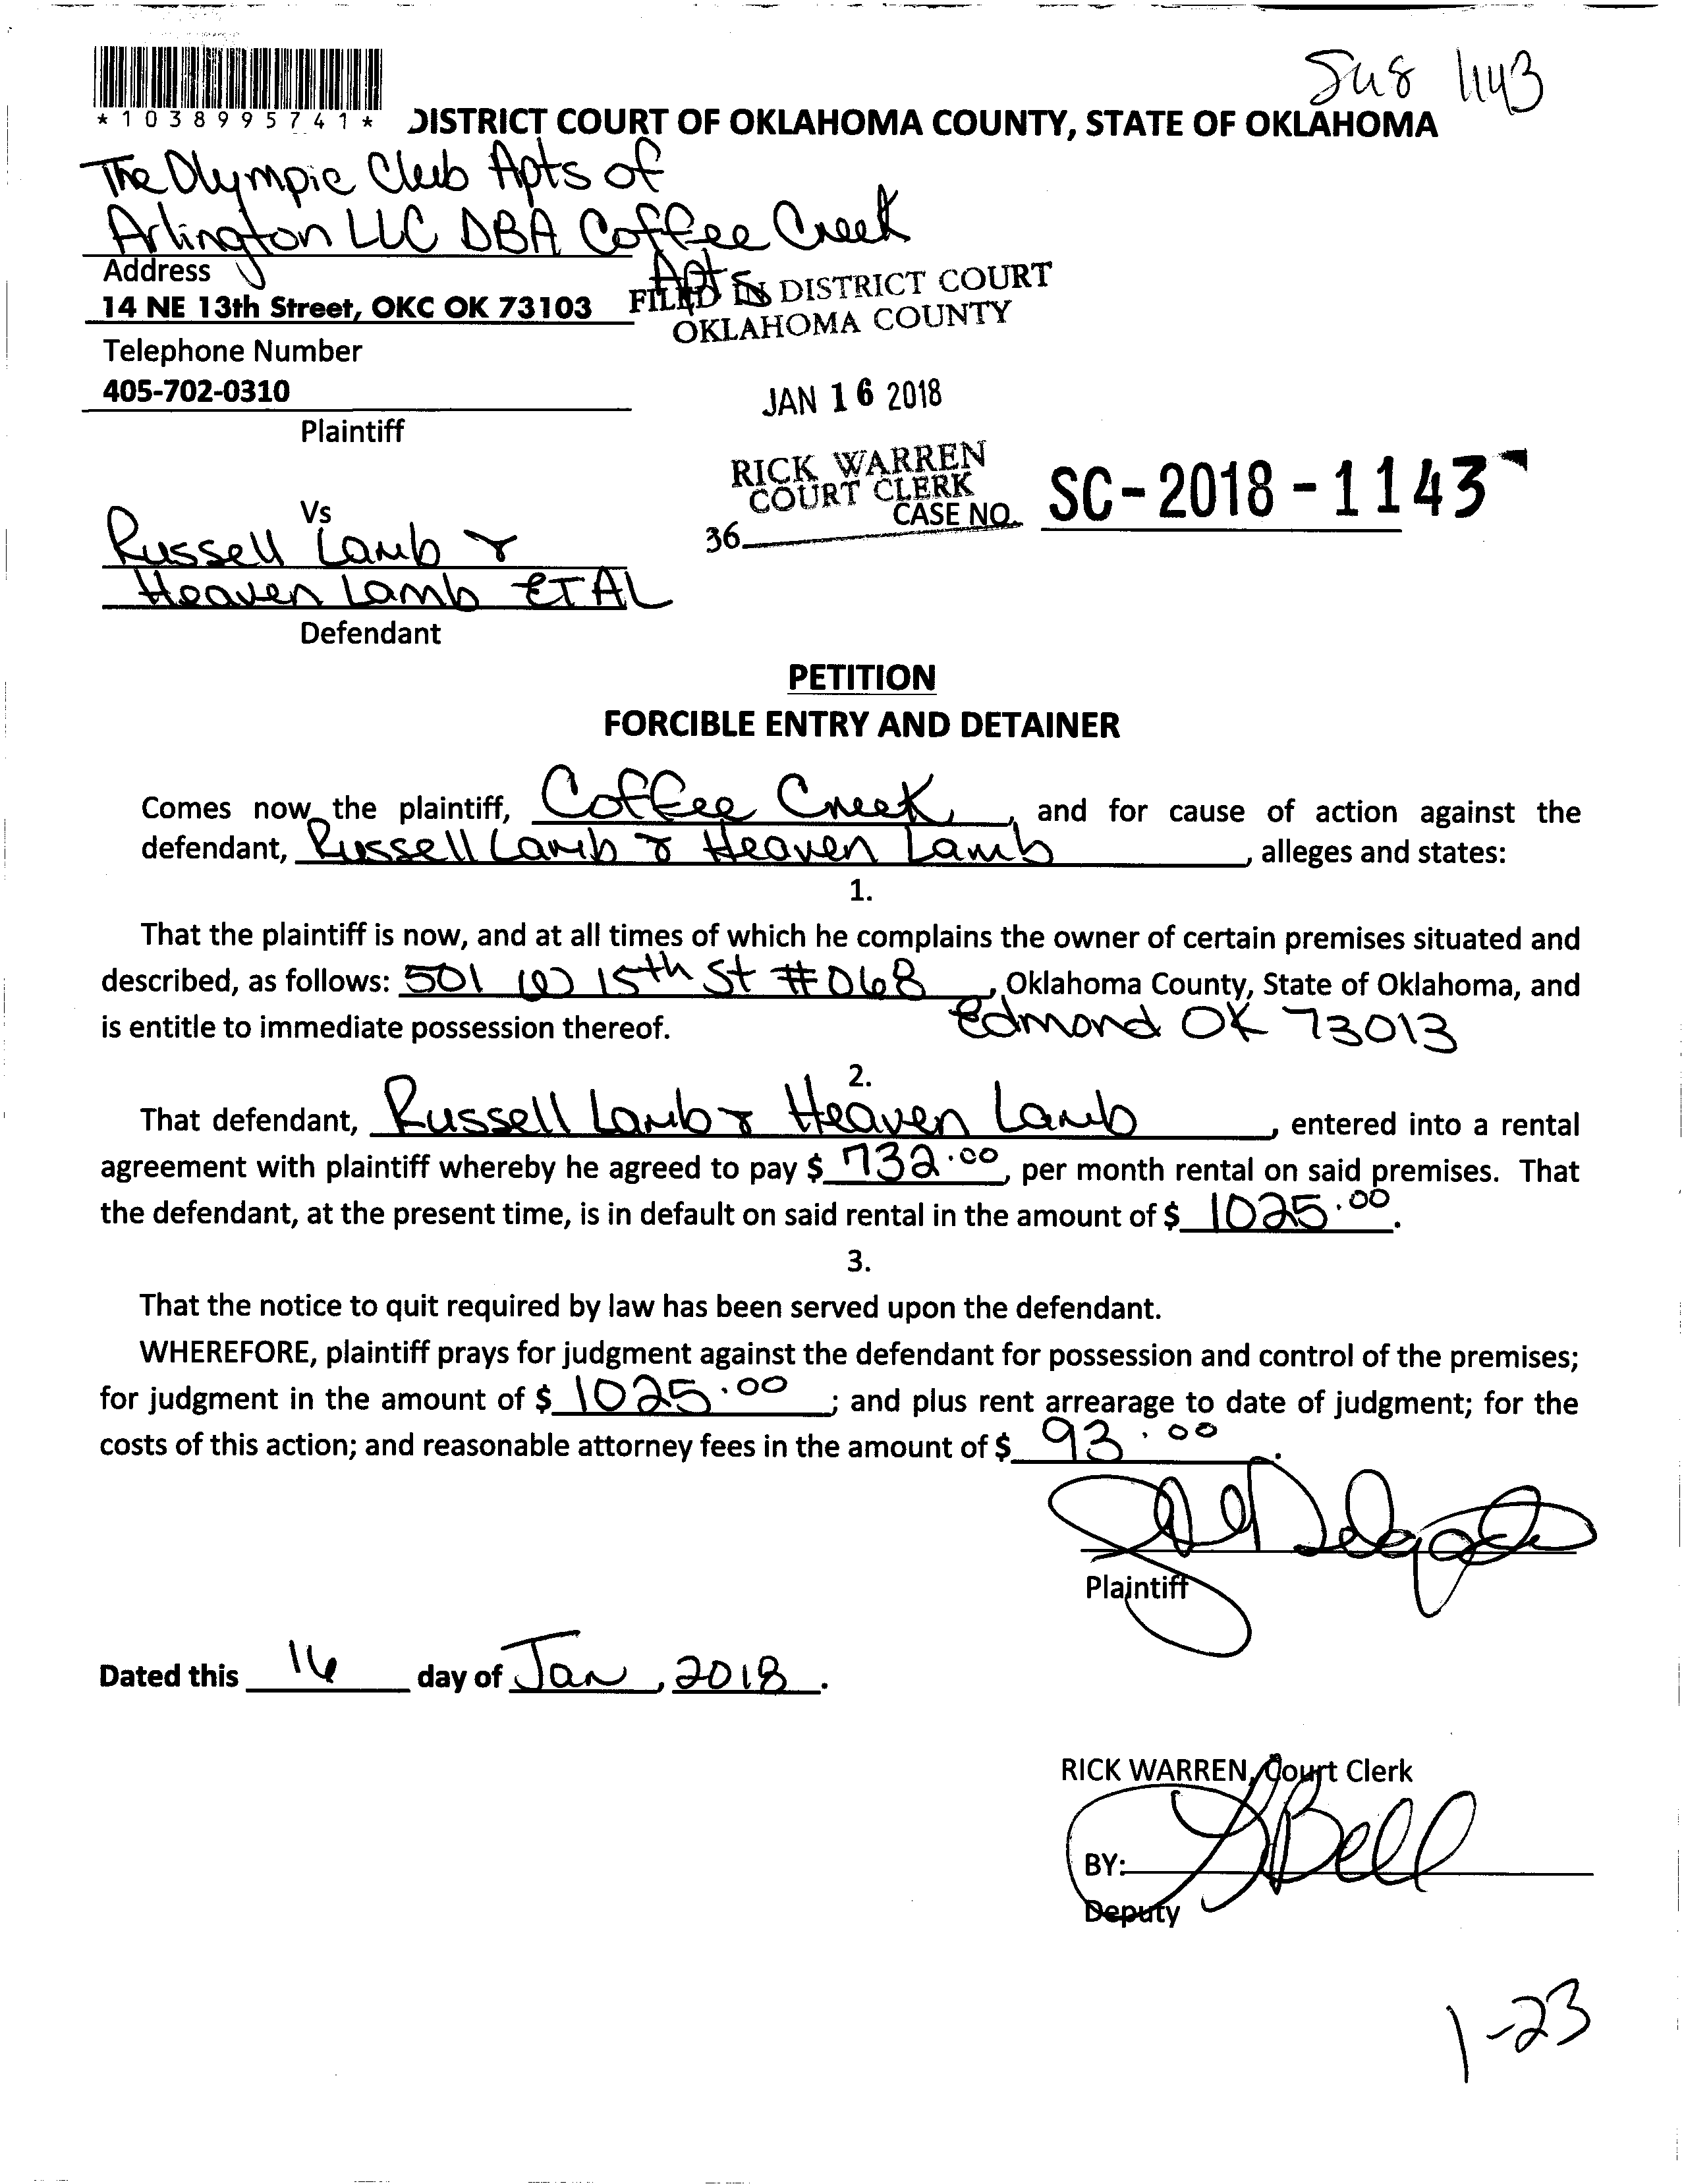 Su8 1143
*1038995741*
DISTRICT COURT OF OKLAHOMA COUNTY, STATE OF OKLAHOMA
The Olympic Club Apts of
Arlington LLC DBA Coffee Creek
Apts
Address
14 NE 13th Street, OKC OK 73103
FILED IN DISTRICT COURT
OKLAHOMA COUNTY
Telephone Number
405-702-0310
JAN 16 2018
Plaintiff
RICK WARREN
COURT CLERK
Vs
CASE NO. SC-2018-1143
36
Russell Lamb &
Heaven Lamb ETAL
Defendant
PETITION
FORCIBLE ENTRY AND DETAINER
Comes now the plaintiff, Coffee Creek, and for cause of action against the
defendant, Russell Lamb & Heaven Lamb, alleges and states:
1.
That the plaintiff is now, and at all times of which he complains the owner of certain premises situated and
described, as follows: 501 W 15th St #068, Oklahoma County, State of Oklahoma, and
is entitle to immediate possession thereof. Edmond OK 73013
2.
That defendant, Russell Lamb & Heaven Lamb, entered into a rental
agreement with plaintiff whereby he agreed to pay $ 732.00, per month rental on said premises. That
the defendant, at the present time, is in default on said rental in the amount of $ 1025.00.
3.
That the notice to quit required by law has been served upon the defendant.
WHEREFORE, plaintiff prays for judgment against the defendant for possession and control of the premises;
for judgment in the amount of $ 1025.00; and plus rent arrearage to date of judgment; for the
costs of this action; and reasonable attorney fees in the amount of $ 93.00.
Plaintiff
Dated this 16 day of Jan, 2018.
RICK WARREN, Court Clerk
BY: Bell
Deputy
1-23